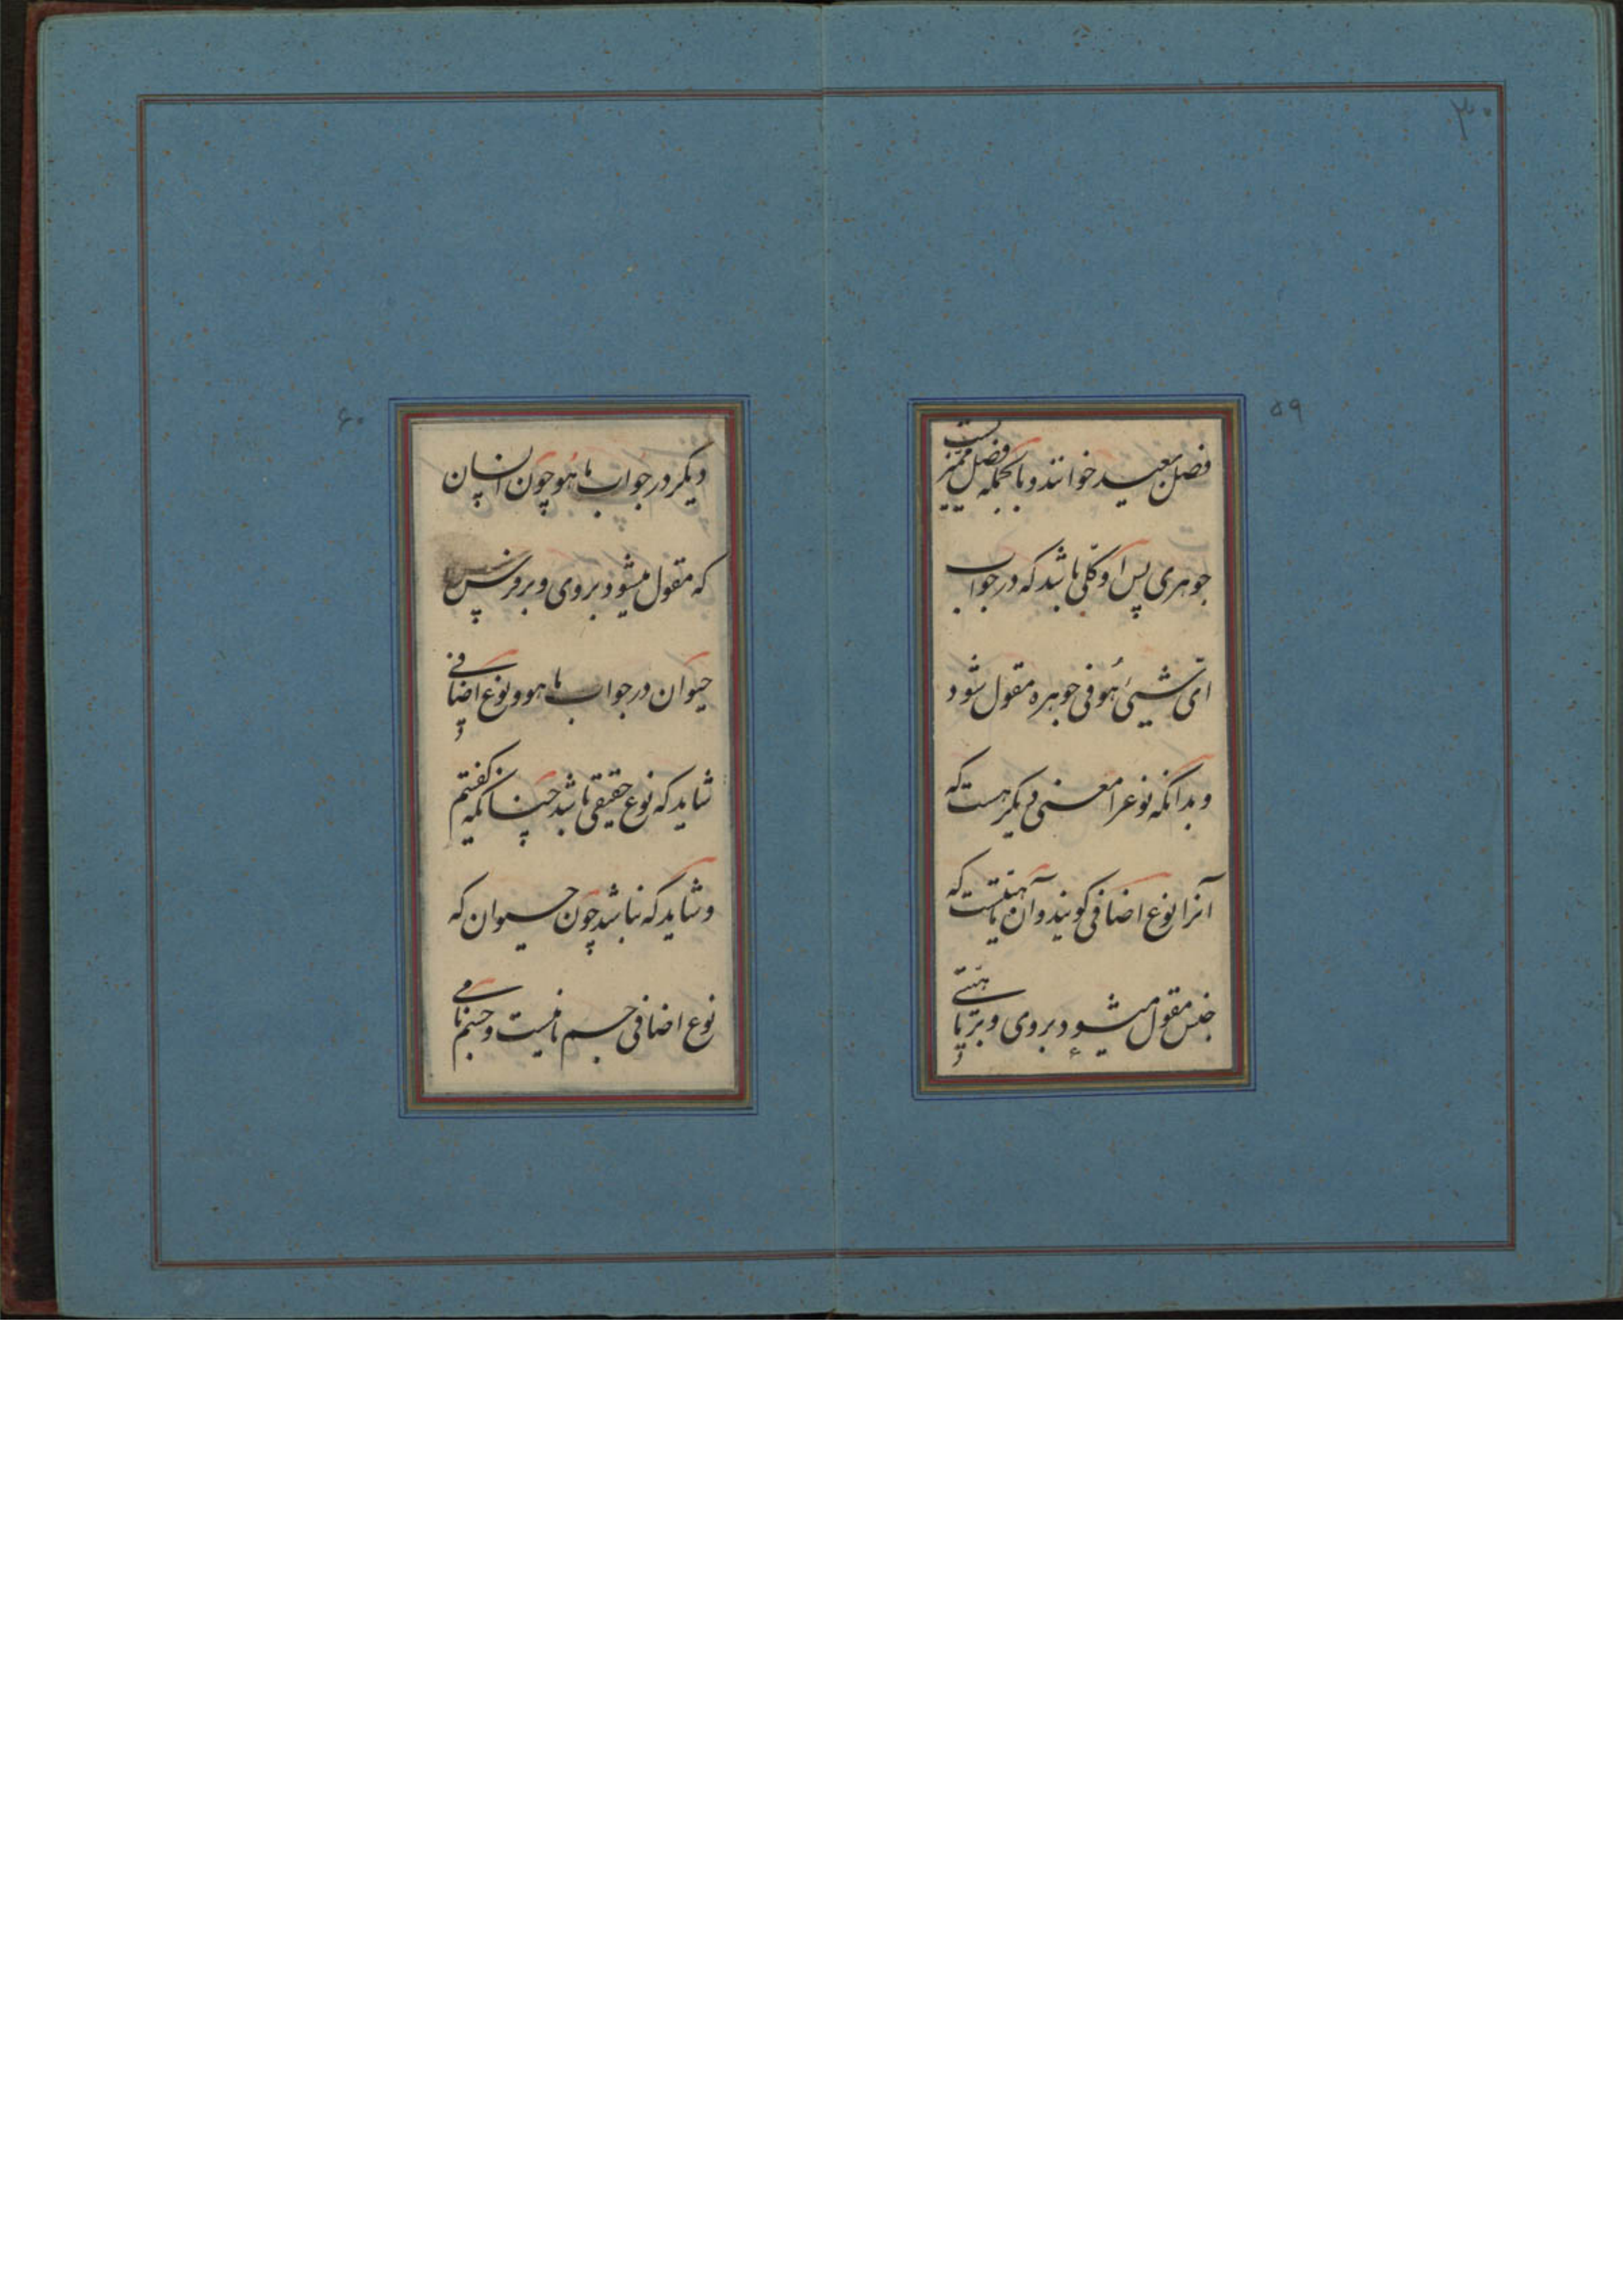 ۳۰
۵۹
فصل بعید خوانند و بالجمله فصل ممیز
جوهری پس او کلی باشد که در جواب
ایّ شیئ هُو فی جوهره مقول شود
و بدانکه نوعرا معنی دیکر هست که
آنرا نوع اضافی کویند و آن ماهیّتیست که
جنس مقول میشود بروی و بر ماهیّتی
۶۰
دیکر در جواب ما هُو چون انسان
که مقول میشود بروی و بر فرس
حیوان در جواب ما هو و نوع اضافی
شاید که نوع حقیقی باشد چنانکه کفتیم
و شاید که نباشد چون حیوان که
نوع اضافی جسم نامیست و جسم نامی